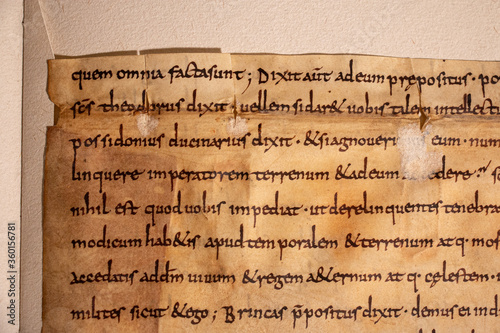 quem omnia facta sunt; Dixit aut adeum prepositus · po
scs theodorus dixit · vellem si daret uobis talem intellectu
possidonius ducinarius dixit · & si agnoueri eum · num
linquere imperatorem terrenum & ad eum dere
nihil est quod uobis impediat · ut derelinquentes tenebra
modicum hab&is apud temporalem & terrenum at q · mo
accedatis ad dm uiuum & regem a&ernum at q · celestem · i
milites sicut & ego; Brincas ppositus dixit · demus ei in